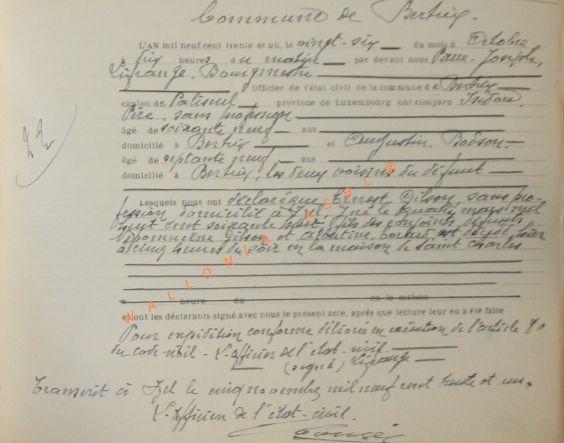 Commune de Bertrix.
L'AN mil neuf cent trente et un, le vingt-six du mois d'Octobre
à dix heures du matin par devant nous Joseph,
Bourgmestre
Officier de l'état civil de la commune de Bertrix
canton de Paliseul province de Luxembourg ont comparu Isidore
sans profession
âgé de soixante neuf ans
domicilié à Bertrix et Augustin,
âgé de septante neuf ans
domicilié à Bertrix, les deux voisins du défunt
22
Lesquels nous ont déclaré que Ernest Gilson, sans pro-
fession domicilié à Izel, né le quatre mai mil
huit cent soixante sept, fils des conjoints défunts
Népomucène Gilson et est décédé hier
à cinq heures du soir en la maison de Saint Charles
à heure du en la maison
et ont les déclarants signé avec nous le présent acte, après que lecture leur en a été faite
Pour expédition conforme délivrée en exécution de l'article 80
du code civil - L'officier de l'état-civil.
(signé)
Transcrit à Izel le cinq novembre mil neuf cent trente et un.
L'officier de l'état-civil.